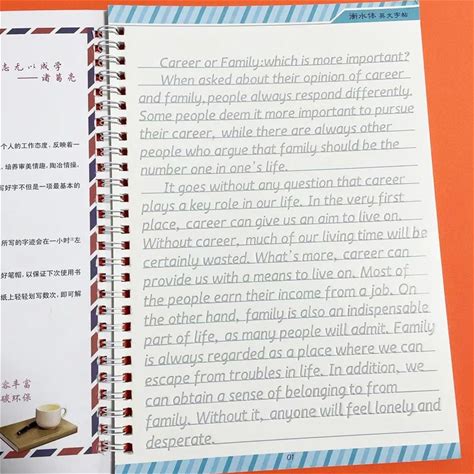 志无以成学
——诸葛亮
个人的工作态度，反映着一
、培养审美情趣，陶冶情操，
写好字不但是一项最基本的
所写的字迹会在一小时左
好笔帽，以保证下次使用书
纸上轻轻划写数次，即可解
容丰富
碳环保
衡水体 英文字帖
Career or Family:which is more important?
When asked about their opinion of career
and family, people always respond differently.
Some people deem it more important to pursue
their career, while there are always other
people who argue that family should be the
number one in one's life.
It goes without any question that career
plays a key role in our life. In the very first
place, career can give us an aim to live on.
Without career, much of our living time will be
certainly wasted. What's more, career can
provide us with a means to live on. Most of
the people earn their income from a job. On
the other hand, family is also an indispensable
part of life, as many people will admit. Family
is always regarded as a place where we can
escape from troubles in life. In addition, we
can obtain a sense of belonging to from
family. Without it, anyone will feel lonely and
desperate.
01